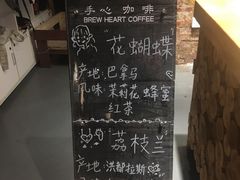 手心咖啡
BREW HEART COFFEE
"花蝴蝶"
产地:巴拿马
风味:茉莉花 蜂蜜
红茶
"荔枝兰"
产地:洪都拉斯